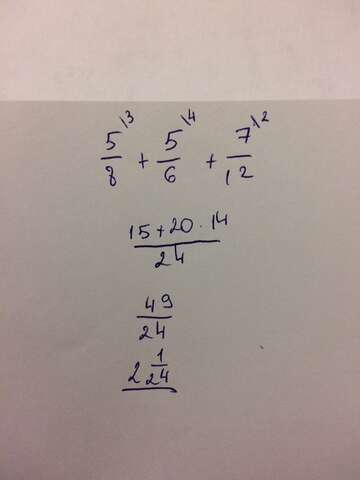 5/8 \3 + 5/6 \4 + 7/12 \2
15+20·14/24
49/24
2 1/24